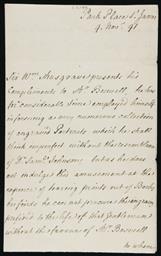 Park Place St. James
4 Novr. 91
Sir Wm. Musgrave presents his
Compliments to Mr. Boswell, he has
for considerable time employed himself
in forming as very numerous collection
of engraved Portraits which he shall
think imperfect without the resemblance
of Dr. Saml. Johnson; but as he does
not indulge this amusement at the
expence of leaving prints out of Books
he finds he can not procure the engraving
prefixed to the life of that Gentleman
without the favour of Mr. Boswell
to whom